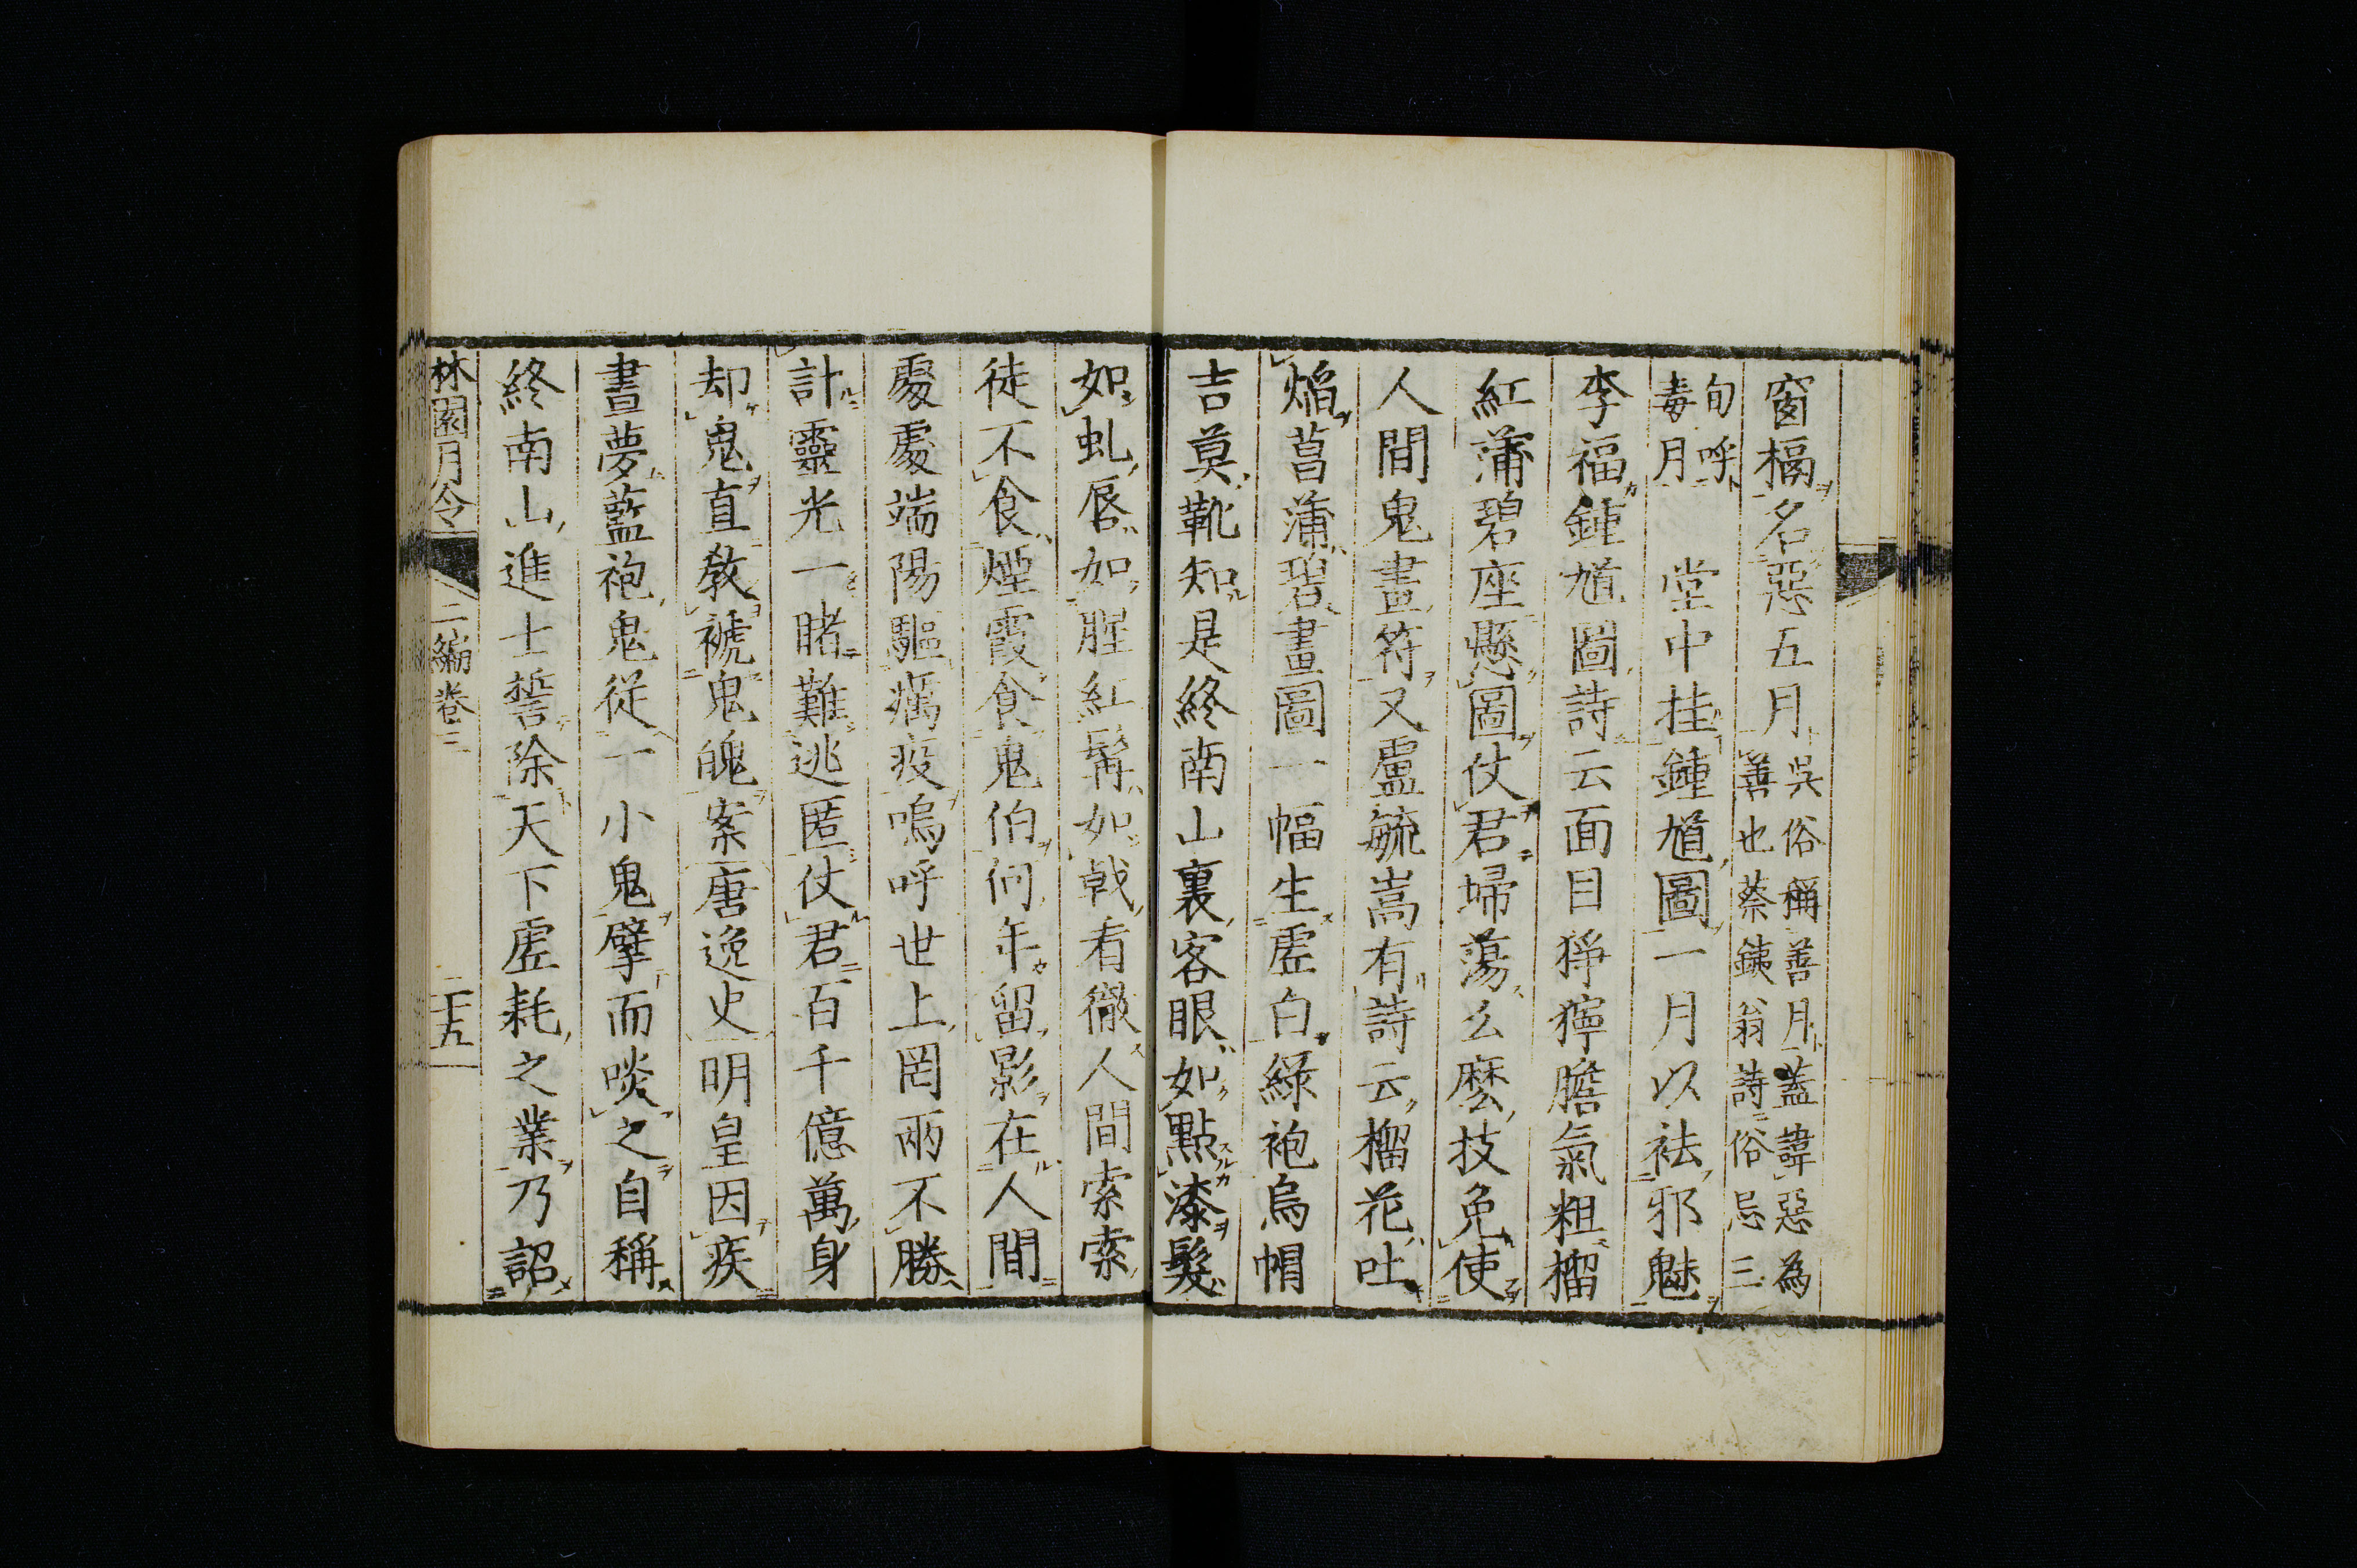 窗槅名惡五月吳俗稱善月蓋諱惡為
善也蔡鉄翁詩俗忌三
旬呼
毒月堂中挂鍾馗圖一月以祛邪魅
李福鍾馗圖詩云面目猙獰膽氣粗榴
紅蒲碧座懸圖仗君掃蕩么麼技免使
人間鬼畫符又盧毓嵩有詩云榴花吐
焰菖蒲碧畫圖一幅生虛白綠袍烏帽
吉莫靴知是終南山裏客眼如點漆髮
如虬唇如腥紅髯如戟看徹人間索索
徒不食煙霞食鬼伯何年留影在人間
處處端陽驅癘疫嗚呼世上罔兩不勝
計靈光一睹難逃匿仗君百千億萬身
却鬼直教褫鬼魄案唐逸史明皇因疾
晝夢藍袍鬼從一小鬼擘而啖之自稱
終南山進士誓除天下虛耗之業乃詔
林園月令 二編卷三 二十五